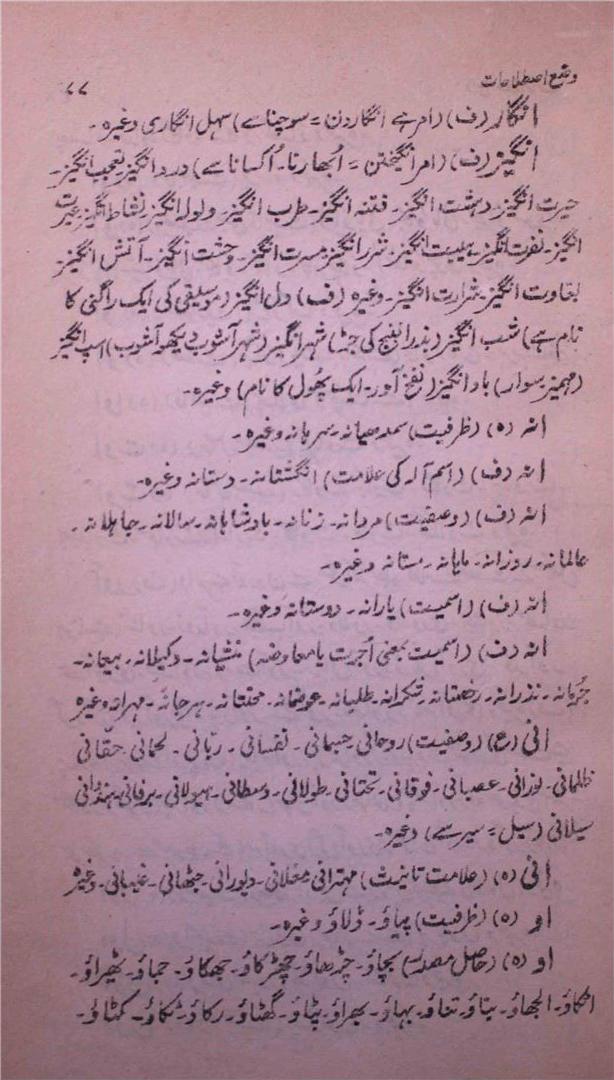 وضع اصطلاحات ۷۷
انگار (ف) (امر ہے انگاردن = سوچنا سے) سہل انگاری وغیرہ۔
انگیز (ف) (امر انگیختن = اُبھارنا۔ اُکسانا سے) درد انگیز۔ تعجب انگیز۔
حیرت انگیز۔ دہشت انگیز۔ فتنہ انگیز۔ طرب انگیز۔ ولولہ انگیز۔ نشاط انگیز۔ عبرت
انگیز۔ نفرت انگیز۔ ہیبت انگیز۔ شرر انگیز۔ مسرت انگیز۔ وحشت انگیز۔ آتش انگیز۔
بغاوت انگیز۔ شرارت انگیز۔ وغیرہ (ف) دل انگیز (موسیقی کی ایک راگنی کا
نام ہے) شب انگیز (بذر البنج کی جڑ) شہر انگیز (شہر آشوب دیکھو آشوب) اسپ انگیز
(مہمیز۔ سوار) باد انگیز (نفخ آور۔ ایک پھول کا نام) وغیرہ۔
انہ (ہ) (ظرفیت) سمدھیانہ۔ سرہانہ وغیرہ۔
انہ (ف) (اسم آلہ کی علامت) انگشتانہ۔ دستانہ وغیرہ۔
انہ (ف) (وصفیت) مردانہ۔ زنانہ۔ بادشاہانہ۔ سالانہ۔ جاہلانہ۔
عالمانہ۔ روزانہ۔ ماہانہ۔ مستانہ وغیرہ۔
انہ (ف) (اسمیت) یارانہ۔ دوستانہ وغیرہ۔
انہ (ف) (اسمیت بمعنی اُجرت یا معاوضہ) منشیانہ۔ وکیلانہ۔ بیعانہ۔
جُرمانہ۔ نذرانہ۔ رخصتانہ۔ شکرانہ۔ طلبانہ۔ عوضانہ۔ محنتانہ۔ ہرجانہ۔ مہرانہ وغیرہ
انی (ع) (وصفیت) روحانی۔ جسمانی۔ نفسانی۔ ربّانی۔ لحمانی۔ حقّانی
ظلمانی۔ نورانی۔ عصبانی۔ فوقانی۔ تحتانی۔ طولانی۔ وسطانی۔ ہیولانی۔ یرقانی۔
سیلانی (سیل = سیر سے) وغیرہ۔
انی (ہ) (علامت تانیث) مہترانی۔ مغلانی۔ دیورانی۔ جٹھانی۔ وغیرہ
او (ہ) (ظرفیت) پیاؤ۔ ڈلاؤ وغیرہ۔
او (ہ) (حاصل مصدر) بچاؤ۔ چڑھاؤ۔ چھڑکاؤ۔ جھکاؤ۔ جماؤ۔ ٹھیراؤ۔
اٹکاؤ۔ الجھاؤ۔ بتاؤ۔ تناؤ۔ بہاؤ۔ بھراؤ۔ پٹاؤ۔ گھٹاؤ۔ رکاؤ۔ ٹکاؤ۔ کٹاؤ۔